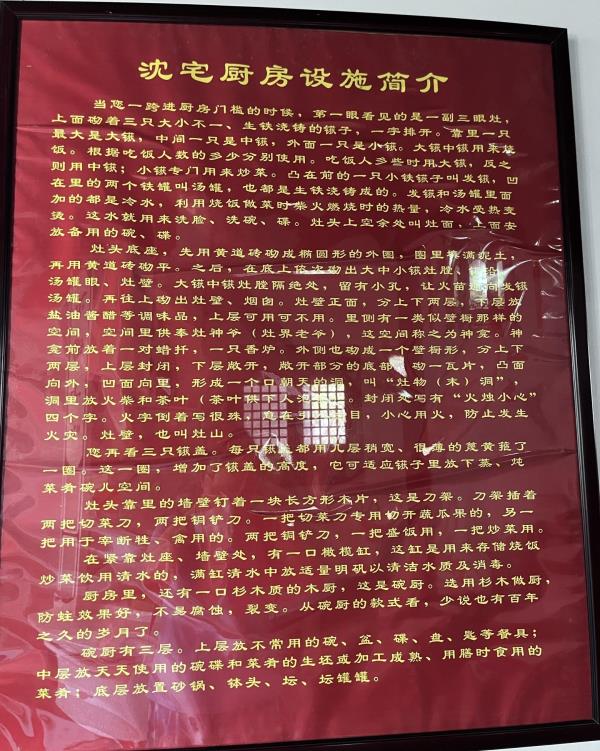 沈宅厨房设施简介
当您一跨进厨房门槛的时候，第一眼看见的是一副三眼灶，
上面砌着三只大小不一、生铁浇铸的镬子，一字排开。靠里一只
最大是大镬，中间一只是中镬，外面一只是小镬。大镬中镬用来烧
饭。根据吃饭人数的多少分别使用。吃饭人多些时用大镬，反之
则用中镬；小镬专门用来炒菜。凸在前的一只小铁镬子叫发镬，凹
在里的两个铁罐叫汤罐，也都是生铁浇铸成的。发镬和汤罐里面
加的都是冷水，利用烧饭做菜时柴火燃烧时的热量，冷水受热变
烫。这水就用来洗脸、洗碗、碟。灶头上空余处叫灶面，上面安
放备用的碗、碟。
灶头底座，先用黄道砖砌成椭圆形的外围，圈里填满泥土，
再用黄道砖砌平。之后，在底上依次砌出大中小镬灶膛、
汤罐眼、灶壁。大镬中镬灶膛隔绝处，留有小孔，让火苗通向发镬
汤罐。再往上砌出灶壁、烟囱。灶壁正面，分上下两层，下层放
盐油酱醋等调味品，上层可用可不用。里侧有一类似壁橱那样的
空间，空间里供奉灶神爷（灶界老爷），这空间称之为神龛。神
龛前放着一对蜡扦，一只香炉。外侧也砌成一个壁橱形，分上下
两层，上层封闭，下层敞开，敞开部分的底部 砌一瓦片，凸面
向外，凹面向里，形成一个口朝天的洞，叫“灶物（末）洞”，
洞里放火柴和茶叶（茶叶供下人泡 ）。封闭处写有“火烛小心”
四个字。火字倒着写很殊，意在引 目，小心用火，防止发生
火灾。灶壁，也叫灶山。
您再看三只镬盖。每只镬盖都用几层稍宽、很薄的篾黄箍了
一圈。这一圈，增加了镬盖的高度，它可适应镬子里放下蒸、炖
菜肴碗儿空间。
灶头靠里的墙壁钉着一块长方形木片，这是刀架。刀架插着
两把切菜刀，两把铜铲刀。一把切菜刀专用切开蔬瓜果的，另一
把用于宰断牲、禽用的。两把铜铲刀，一把盛饭用，一把炒菜用。
在紧靠灶座、墙壁处，有一口橄榄缸，这缸是用来存储烧饭
炒菜饮用清水的，满缸清水中放适量明矾以清洁水质及消毒。
厨房里，还有一口杉木质的木厨，这是碗厨。选用杉木做厨，
防蛀效果好，不易腐蚀，裂变。从碗厨的款式看，少说也有百年
之久的岁月了。
碗厨有三层。上层放不常用的碗、盆、碟、盘、匙等餐具；
中层放天天使用的碗碟和菜肴的生坯或加工成熟、用膳时食用的
菜肴；底层放置砂锅、钵头、坛、坛罐罐。